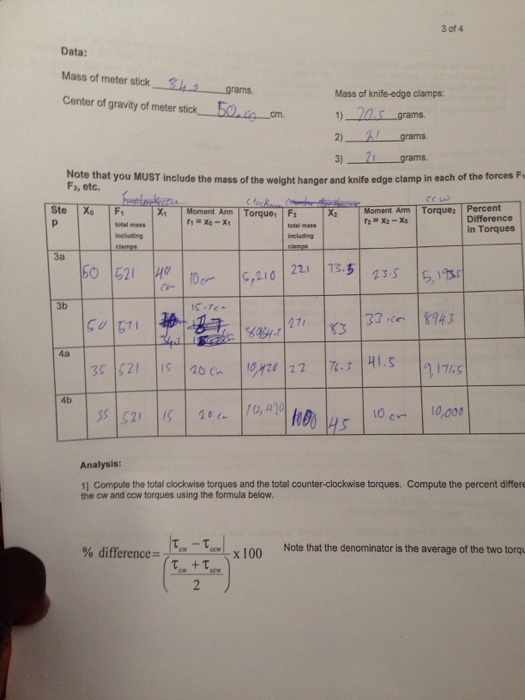 3 of 4
Data:
Mass of meter stick 84.5 grams.
Center of gravity of meter stick 50.00 cm.
Mass of knife-edge clamps:
1) 20.5 grams.
2) 21 grams.
3) 21 grams.
Note that you MUST include the mass of the weight hanger and knife edge clamp in each of the forces F
F₂, etc.
ccw
Step X₀ F₁ total mass including clamps X₁ Moment Arm r₁ = X₀ – X₁ Torque₁ F₂ total mass including clamps X₂ Moment Arm r₂ = X₂ – X₀ Torque₂ Percent Difference in Torques
3a 50 521 40 cm 10 cm 5,210 221 73.5 23.5
3b 50 571 271 83 8943
4a 35 521 15 20 cm 10,420 76.5 41.5
4b 35 521 15 20 cm 45 10 cm 10,000
Analysis:
1) Compute the total clockwise torques and the total counter-clockwise torques. Compute the percent differe
the cw and ccw torques using the formula below.
% difference = |τcw – τccw| / ((τcw + τccw) / 2) x 100
Note that the denominator is the average of the two torqu